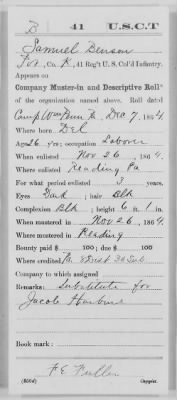 B 41 U.S.C.T
Samuel Benson
Pvt, Co. K, 41 Reg't U. S. Col'd Infantry.
Appears on
Company Muster-in and Descriptive Roll*
of the organization named above. Roll dated
Camp Wm Penn Pa Dec 7, 1864.
Where born Del
Age 26 y'rs; occupation Laborer
When enlisted Nov 26, 1864.
Where enlisted Reading Pa
For what period enlisted 3 years.
Eyes Dark; hair Blk
Complexion Blk; height 6 ft. 1 in.
When mustered in Nov 26, 1864.
Where mustered in Reading
Bounty paid $ 100; due $ 100
Where credited
Company to which assigned
Remarks: Substitute for
Jacob
Book mark:
F E Fuller
Copyist.